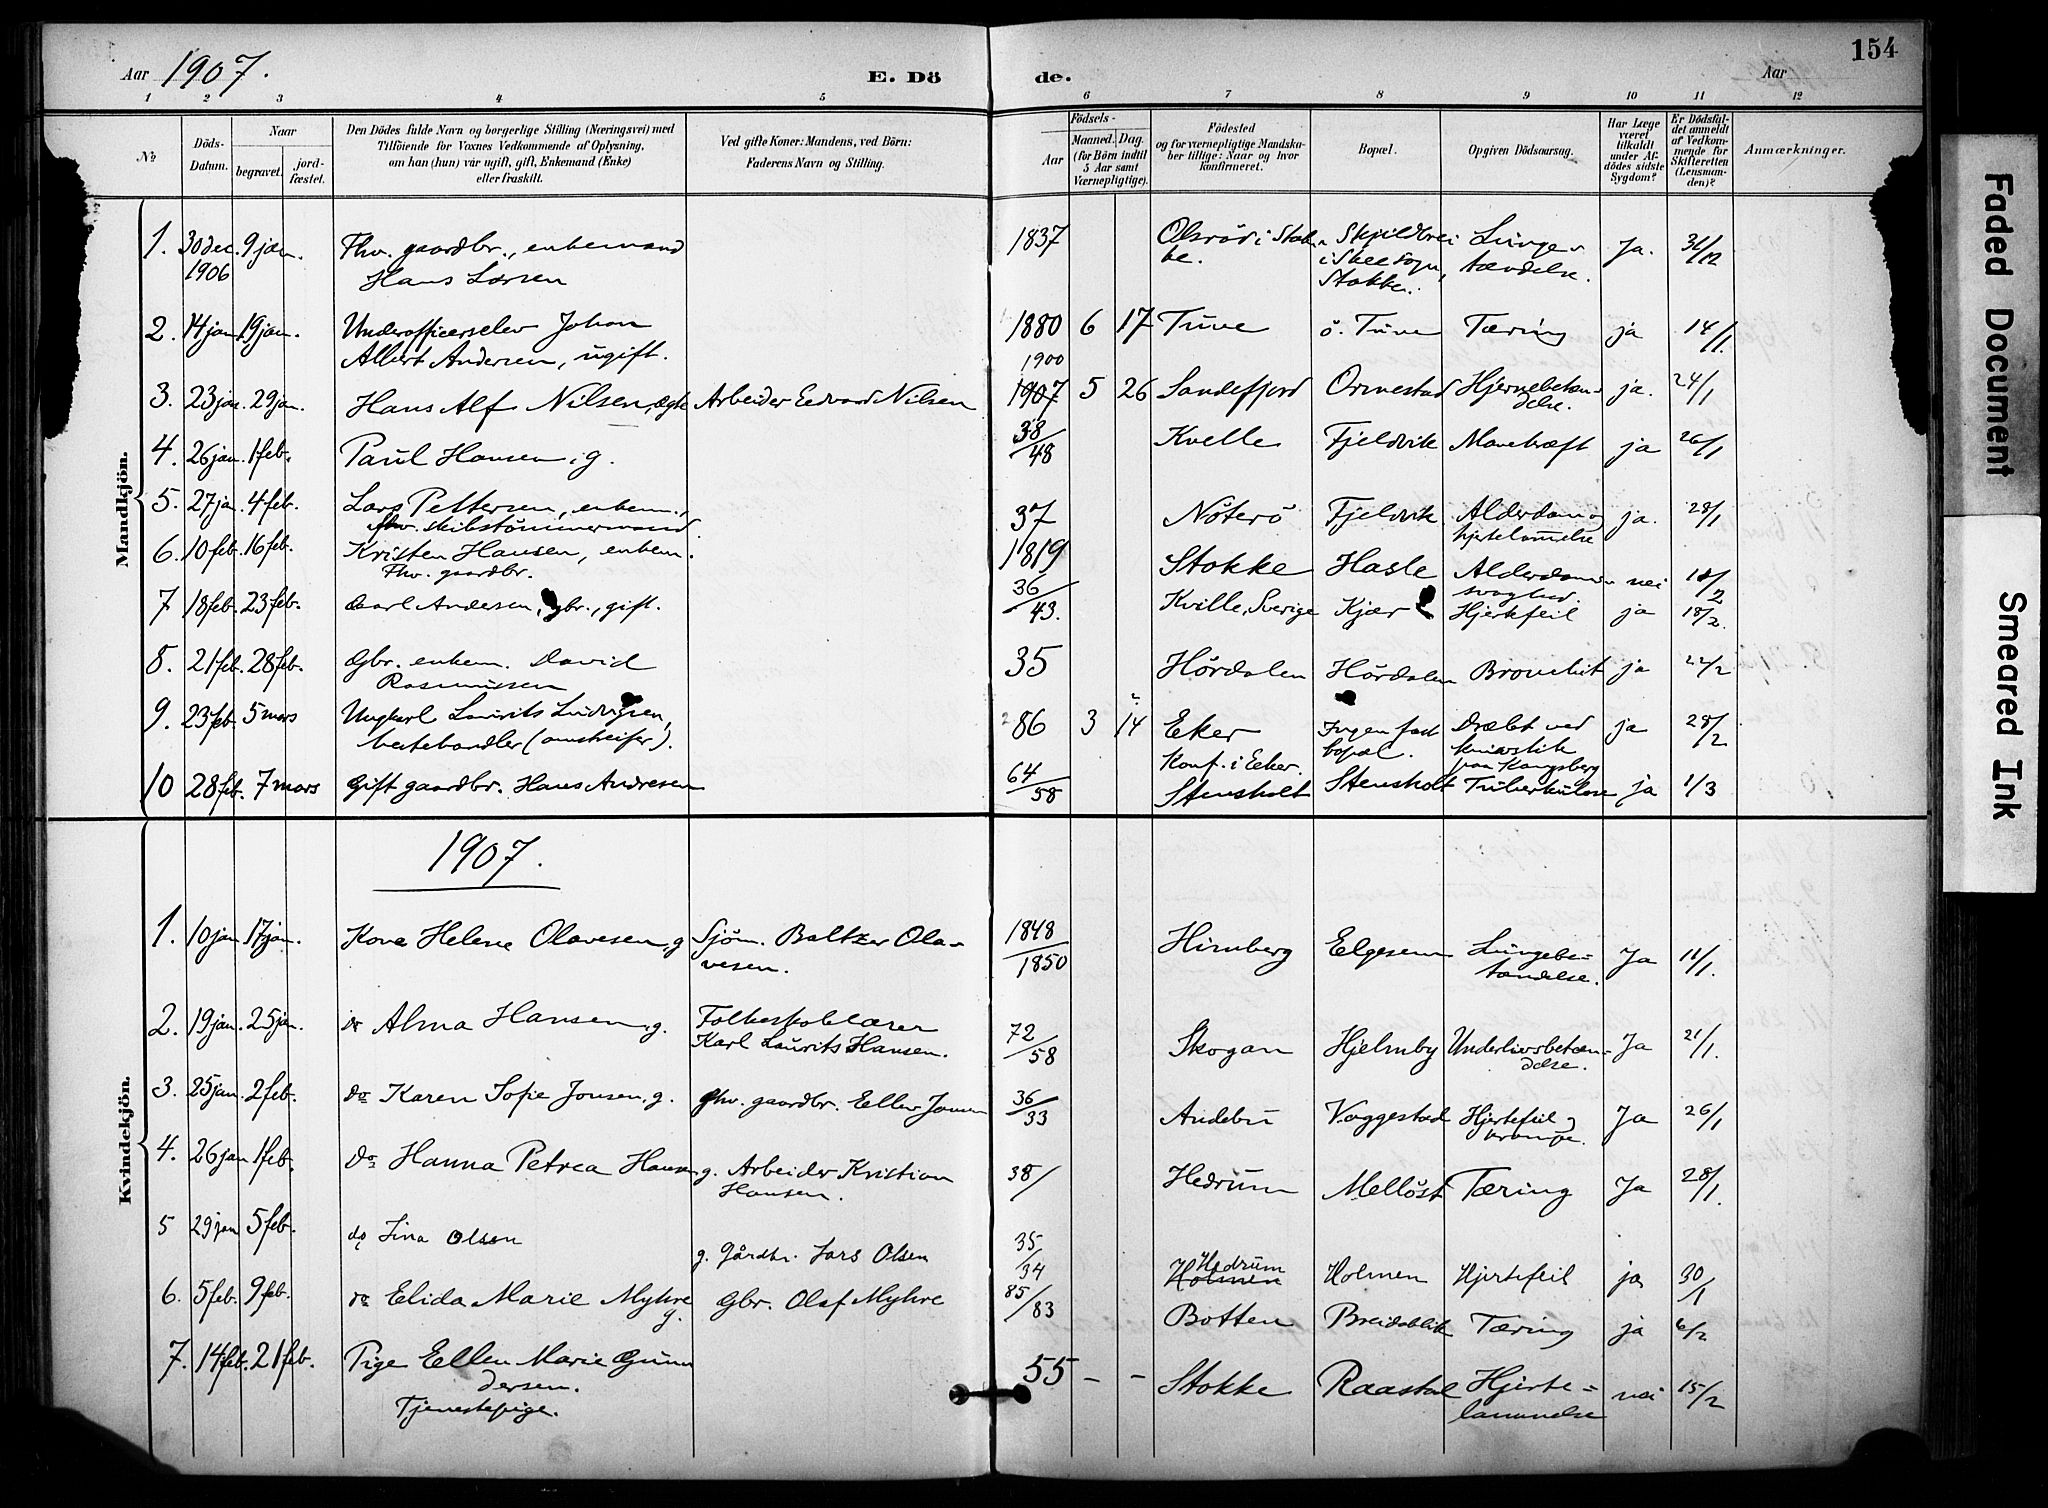 Aar 1907.
E. Dö
de.
Aar
154
1 2 3 4 5 6 7 8 9 10 11 12
№
Döds-
Datum.
Naar
begravet.
jord-
fæstet.
Den Dödes fulde Navn og borgerlige Stilling (Næringsvei) med
Tilföiende for Voxnes Vedkommende af Oplysning,
om han (hun) var ugift, gift, Enkemand (Enke)
eller fraskilt.
Ved gifte Koner: Mandens, ved Börn:
Faderens Navn og Stilling.
Födsels-
Aar
Maaned. Dag.
(for Börn indtil
5 Aar samt
Værnepligtige).
Födested
og for værnepligtige Mandska-
ber tillige: Naar og hvor
konfirmeret.
Bopæl.
Opgiven Dödsaarsag.
Har Læge
været
tilkaldt
under Af-
dödes sidste
Sygdom?
Er Dödsfal-
det anmeldt
af Vedkom-
mende for
Skifteretten
(Lensman-
den)?
Anmærkninger.
Mandkjön.
1. 30 dec. 9 jan. Fhv. gaardbr., enkemand 1837 Olsröd i Stok- Skjildbrei Lungebe- Ja. 31/12
1906 Hans Larsen ke. i Skee sogn, tændelse.
Stokke.
2. 14 jan. 19 jan. Underofficerselev Johan 1880 6 17 Tuve ö. Tuve Tæring ja 14/1
Albert Andersen, ugift.
1900
3. 23 jan. 29 jan. Hans Alf Nilsen, ægte Arbeider Edvard Nilsen 1907 5 26 Sandefjord Ormestad Hjernebetæn- ja. 24/1
delse.
4. 26 jan. 1 feb. Paul Hansen, g. 38/48 Kvelle Fjeldvik Mavekræft ja 26/1
5. 27 jan 4 feb. Lars Pettersen, enkem., 37 Nöterö Fjeldvik Alderdom ja. 28/1
fhv. skibstömmermand. hjertelammelse
6. 10 feb. 16 feb. Kristen Hansen, enkem. 1819 Stokke Hasle Alderdoms- nei 18/2
Fhv. gaardbr. svaghed.
7 18 feb. 23 feb. Carl Andersen, gbr., gift. 36/43. Kville, Sverige Kjær Hjertefeil ja 18/2.
8. 21 feb. 28 feb. Gbr. enkem. David 35 Hördalen Hördalen Bronchit ja 22/2
Rasmussen
9. 23 feb. 5 mars Ungkarl Laurits Ludvigsen, 86 3 14 Eker Ingen fast Dræbt ved ja 28/2
hestehandler (omstreifer). Konf. i Eker. bopæl. knivstik
paa Kongsberg
10 28 feb. 7 mars Gift gaardbr. Hans Andresen 64/58 Stensholt Stensholt Tuberkulose ja 1/3
1907.
Kvindekjön.
1. 10 jan 17 jan. Kone Helene Olavesen, g Sjöm. Baltzer Ola- 1848/1850 Himberg Elgesem Lungebe- Ja 11/1.
vesen. tændelse.
2. 19 jan. 25 jan. do Alma Hansen, g. Folkeskolelærer 72/58 Skogan Hjelmby Underlivsbetæn- Ja 21/1.
Karl Laurits Hansen. delse.
3. 25 jan. 2 feb. do Karen Sofie Jonsen, g. fhv. gaardbr. Ellev Jonsen 36/33 Andebu Vaggestad Hjertefeil Ja 26/1
krampe.
4. 26 jan 1 feb. do Hanna Petrea Hansen g. Arbeider Kristian 38/ Hedrum Mellöst Tæring Ja 28/1.
Hansen.
5 29 jan 5 feb. do Lina Olsen g. Gårdbr. Lars Olsen 35/34 Hedrum Holmen Hjertefeil ja 30/1
Holmen
6. 5 feb. 9 feb. do Elida Marie Myhre Gbr. Olaf Myhre 85/83 Botten Breidablik Tæring ja 6/2
g.
7. 14 feb. 21 feb. Pige Ellen Marie Gun 55 - - Stokke Raastad Hjerte- nei 15/2
dersen. lammelse
Tjenestepige.
Faded Document
Smeared Ink